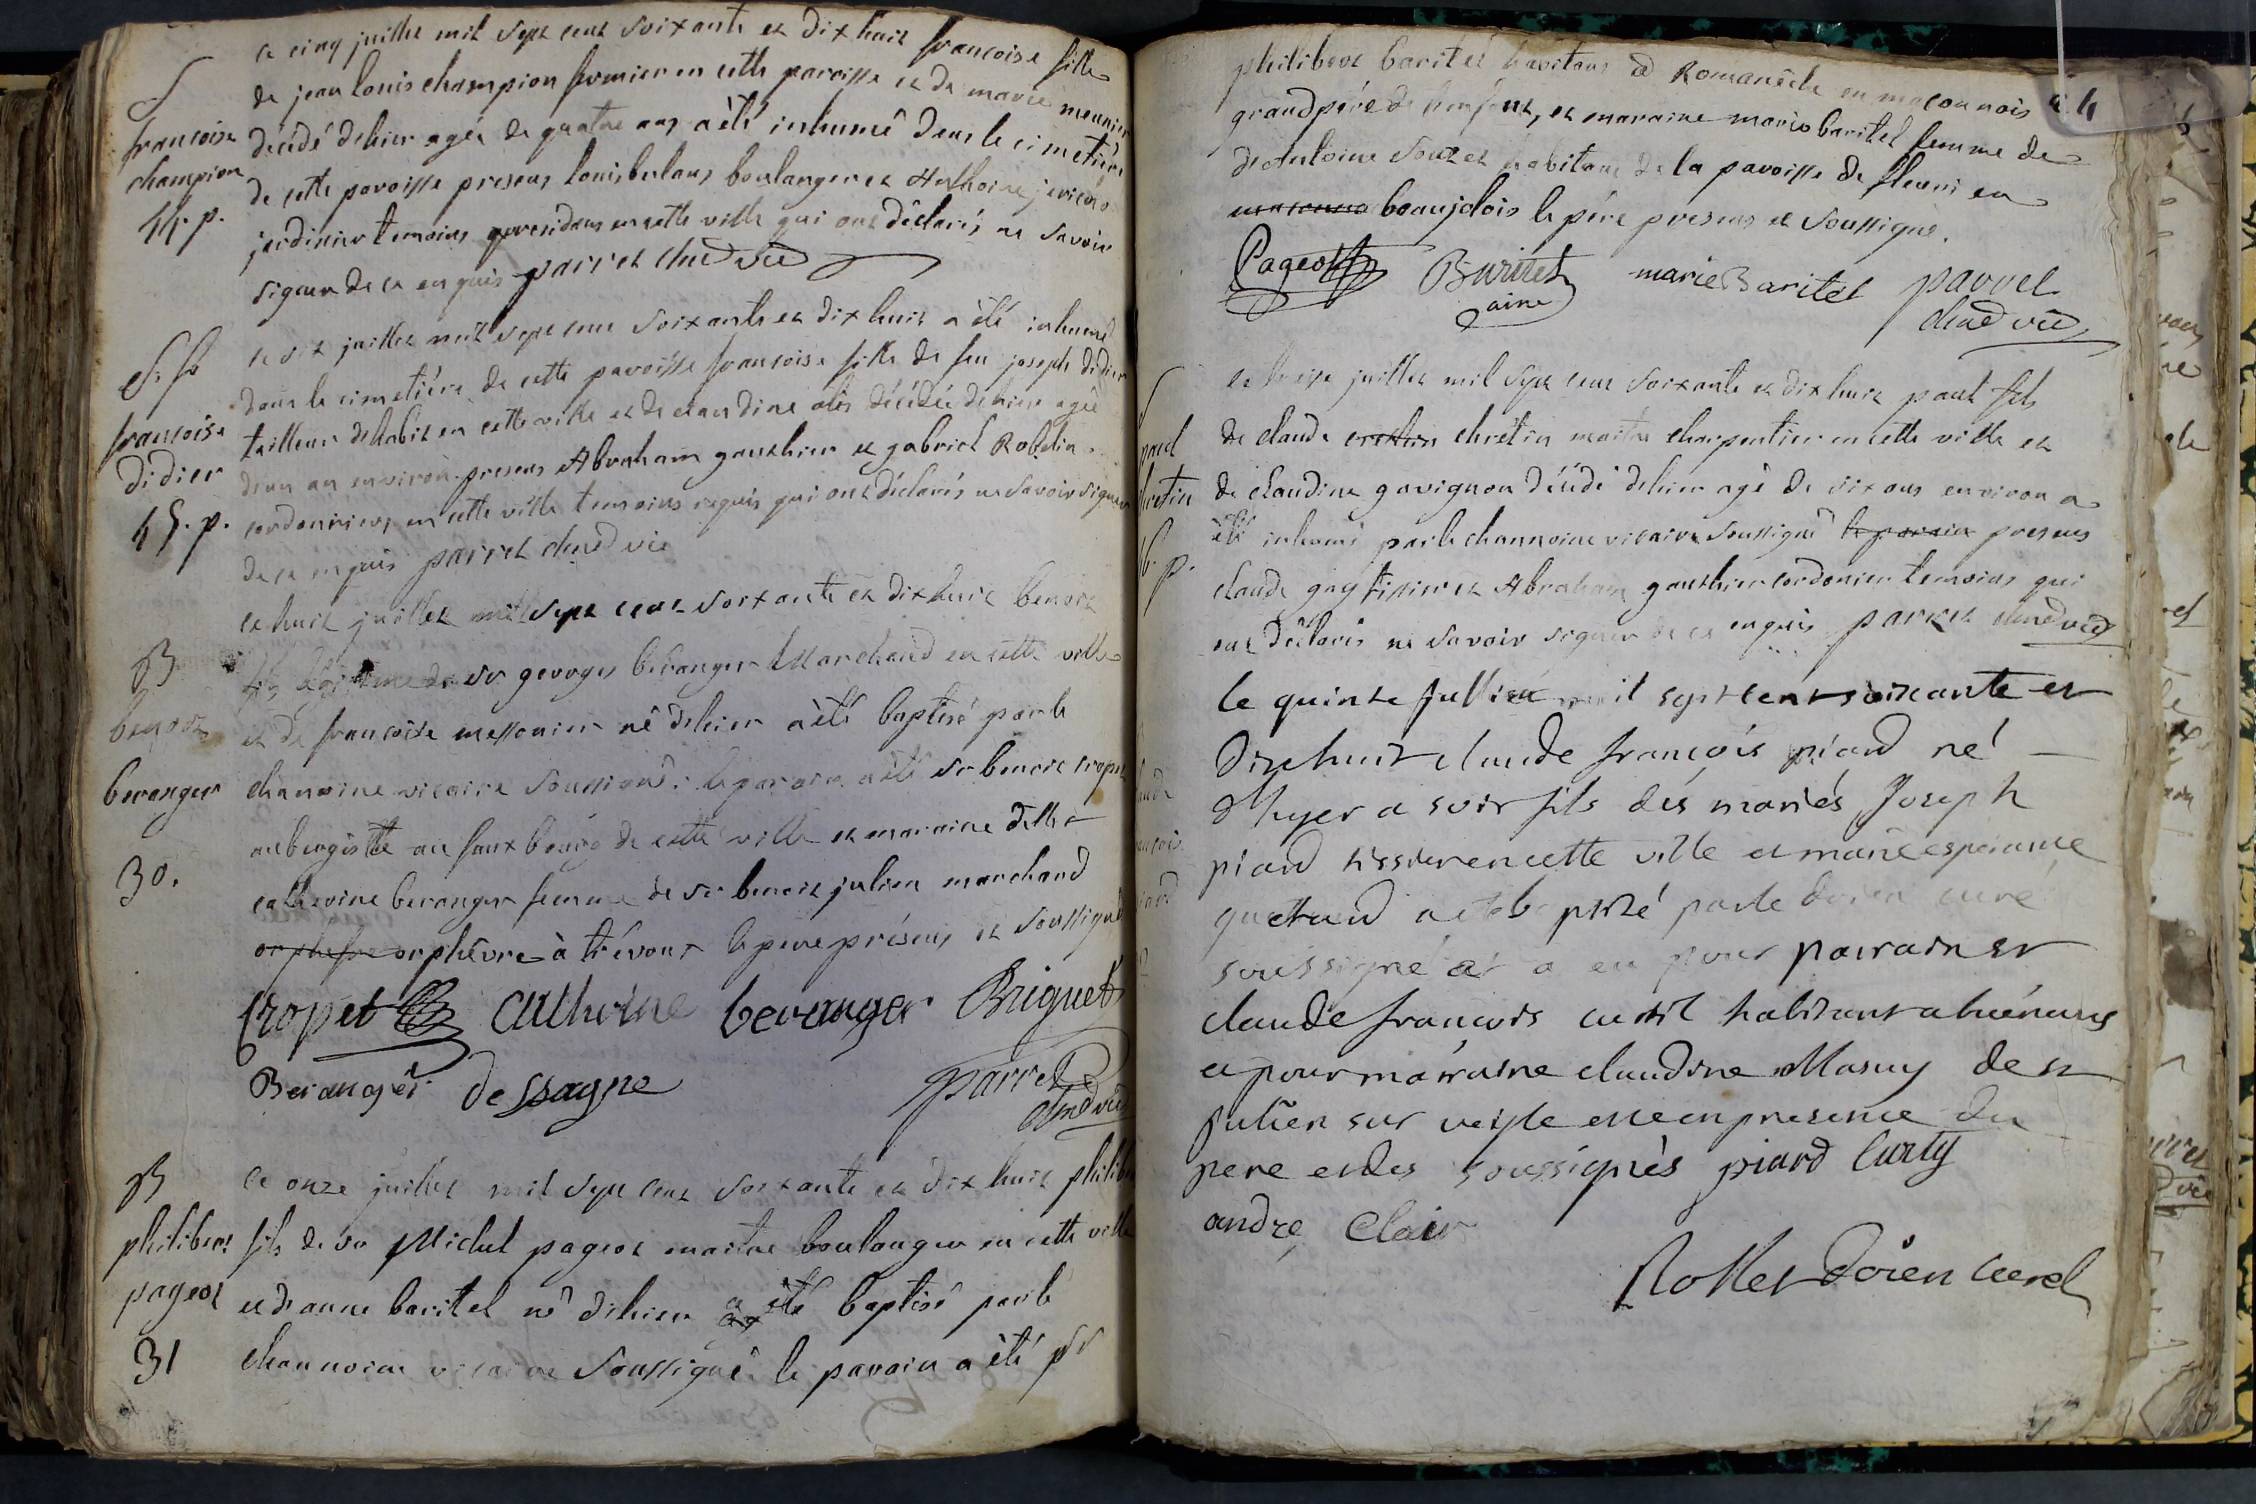 S
francoise
champion
44. p.
ce cinq juillet mil sept cent soixante et dix huit francoise fille
de jean louis champion fermier en cette paroisse et de marie meunier
décédé dehier agée de quatre ans a èté inhumé dans le cimetière
de cette paroisse presens louis berlans boulanger et Anthoine
jardinier temoins residans en cette ville qui ont dèclarés ne savoir
signer de ce enquis parret chne vic
S. fo
francoise
didier
45. p.
ce six juillet mil sept cent soixante et dix huit a èté inhumé
dans le cimetière de cette paroisse francoise fille de feu joseph didier
tailleur dhabit en cette ville et de claudine décédée dehier agée
dun an environ presens Abraham gauthier et gabriel Robelin
cordonniers en cette ville temoins requis qui ont dèclarés ne savoir signer
de ce enquis parret chne vic
B
benoit
beranger
30.
ce huit juillet mil sept cent soixante et dix huit benoit
fils légitime de sr georges béranger Marchand en cette ville
et de francoise messonier né dehier a èté baptisé par le
chanoine vicaire soussigné. le parain a èté sr benoit cropet
aubergiste au faux bourg de cette ville et maraine dlle
catherine beranger femme de sr benoit julien marchand
orphevre à trévoux le pere présens et soussigné
Cropet Catherine beranger Briguet
Beranger dessagne parret
chne vic
B
philibert
pageot
31
ce onze juillet mil sept cent soixante et dix huit philibert
fils de sr Michel pageot maitre boulanger en cette ville
et danne baritel né dehier a èté baptisé par le
channoine vicaire soussigné le parain a èté sr
philibert baritel habitant de Romanèche en maconnois
grand père de lenfant, et maraine marie baritel femme de
dantoine habitant de la paroisse de fleuri en
beaujolois le père presens et soussigné.
Pageot Baritel marie Baritel parret
ainé chne vic
S
paul
hretin
6. p.
ce treize juillet mil sept cent soixante et dix huit paul fils
de claude chrétin maitre charpentier en cette ville et
de claudine gavignon décédé dehier agé de six ans environ a
èté inhumé par le channoine vicaire soussigné le parain presens
claude guy tissier et Abraham gauthier cordonier temoins qui
ont dèclarés ne savoir signer de ce enquis parret chne vic
le quinze Juillet mil sept cent soixante et
dixhuit claude françois piard né
Dhyer a soir fils dés mariés Joseph
piard tissier en cette ville et marie espérance
a eté bptisé par le doien curé
soussigné et a eu pour parain sr
claude francois curtil habitant a
et pour maraine claudine Masuy de st
julien sur veyle et ce en presence du
pere et des soussignés piard Curty
andre Clair
Rollet doien curé